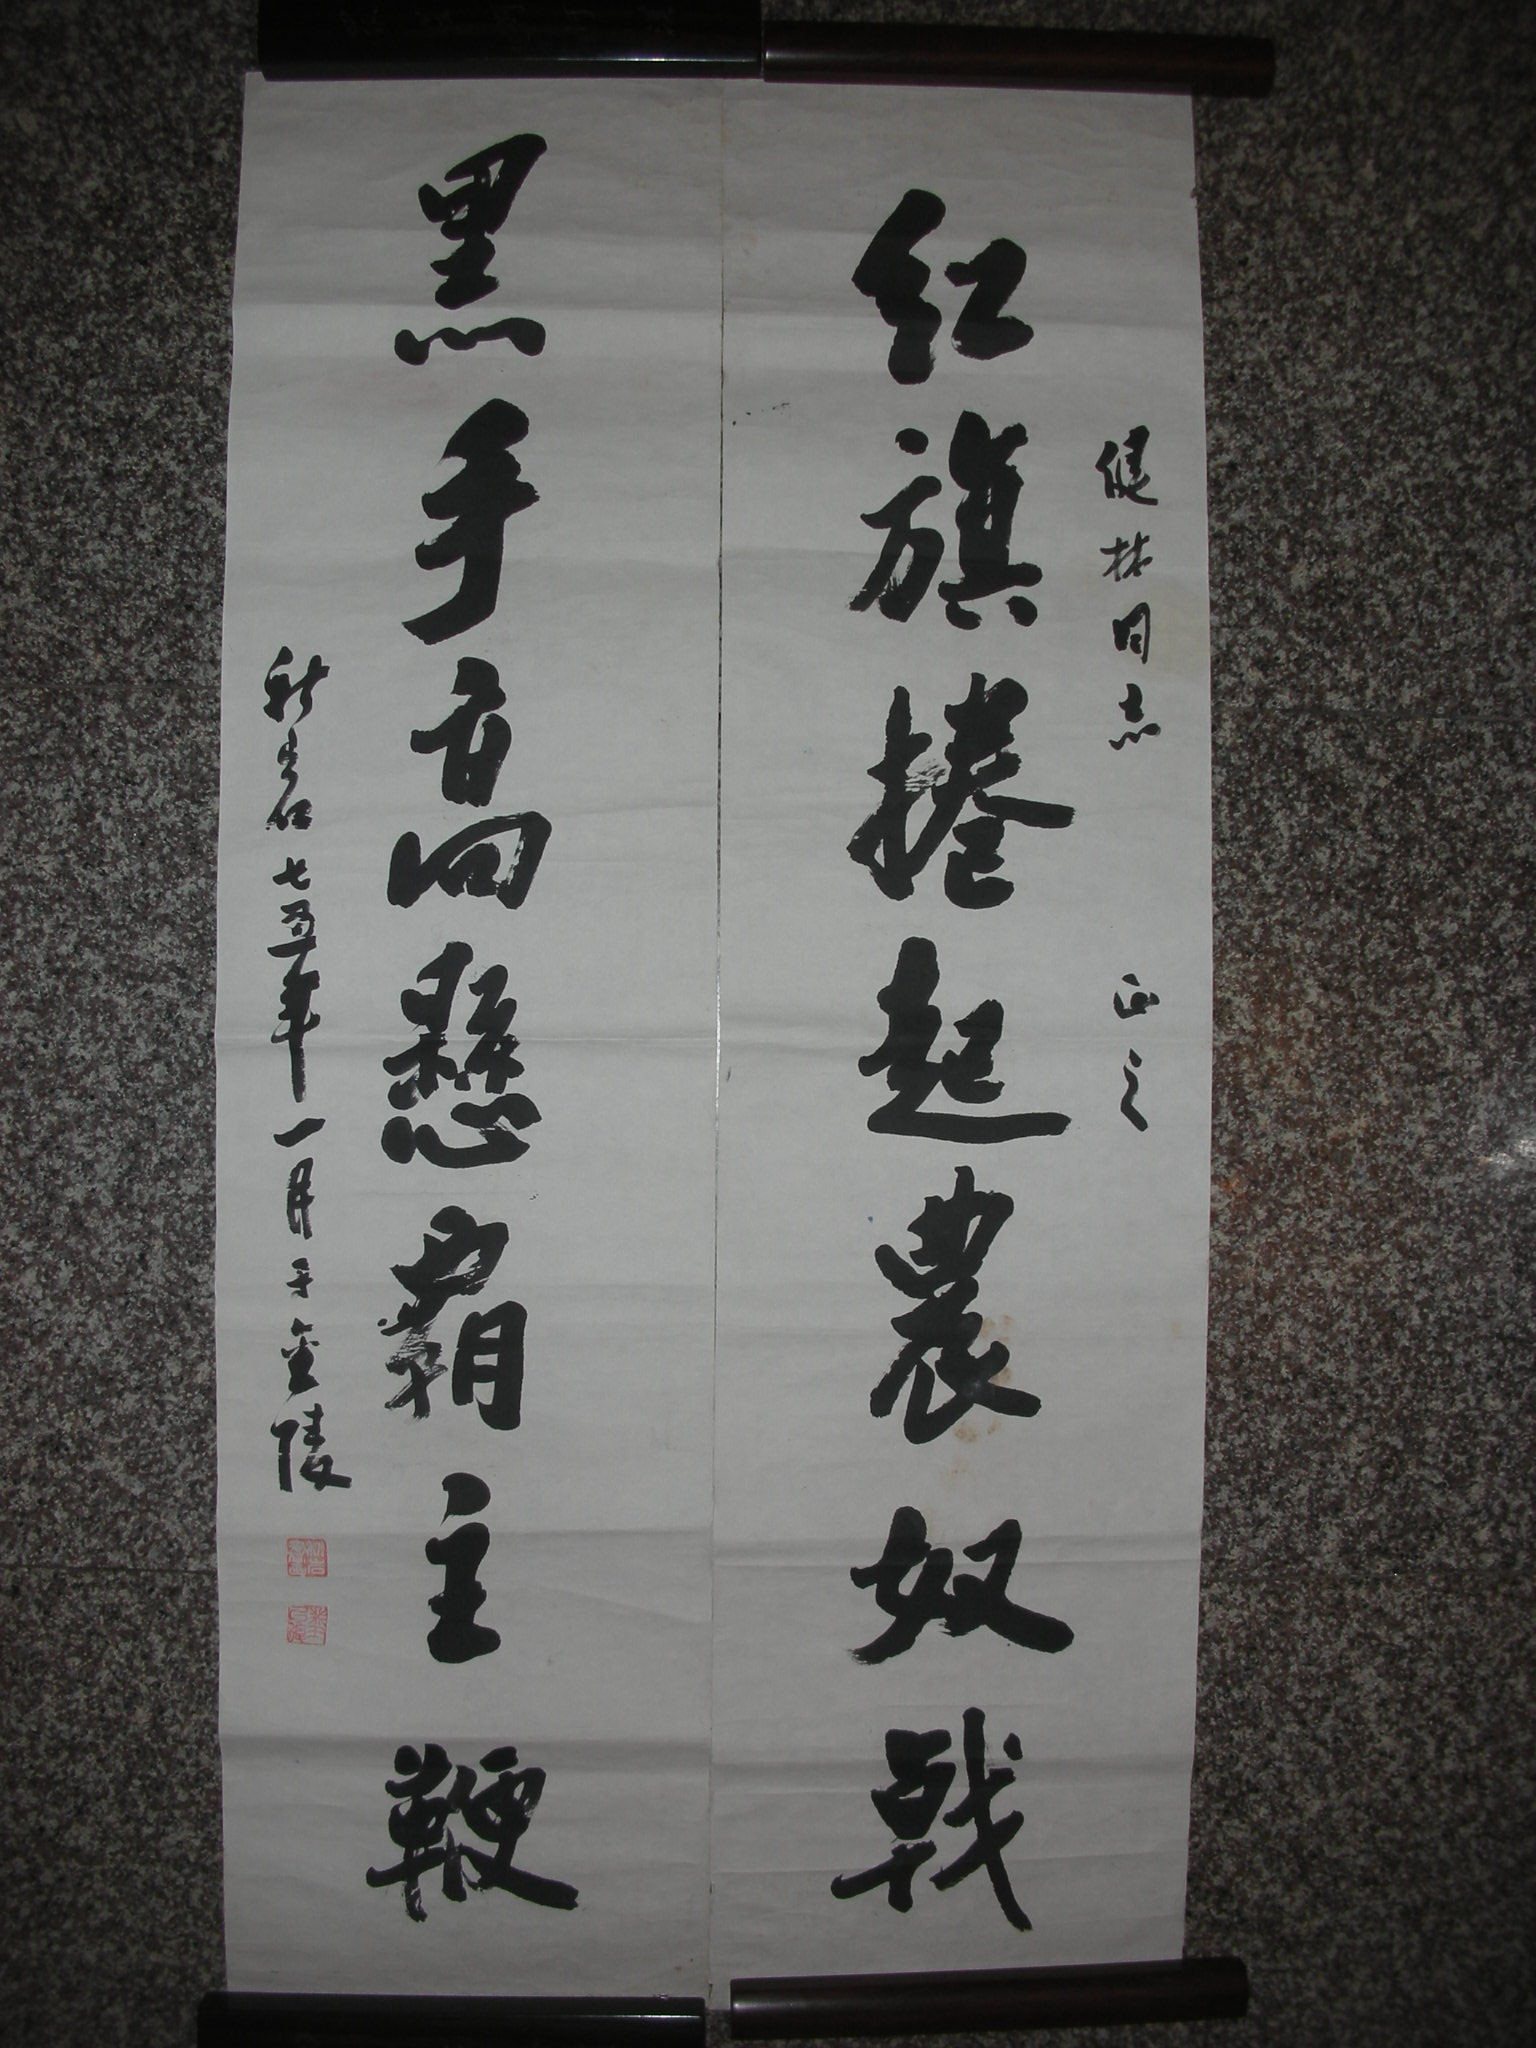 健林同志 正之
红旗捲起農奴戟
黑手高懸霸主鞭
七五年一月于金陵